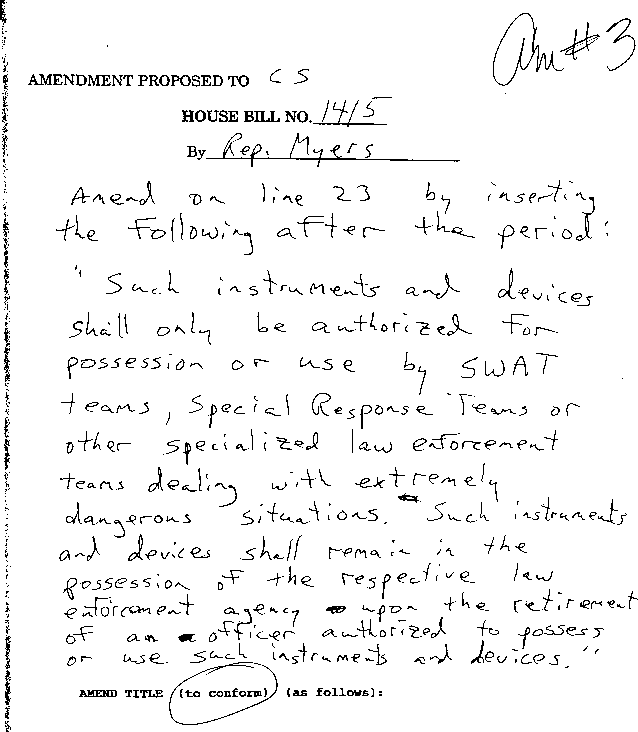 Am #3
AMENDMENT PROPOSED TO CS
HOUSE BILL NO. 1415
By Rep. Myers
Amend on line 23 by inserting
the following after the period:
"Such instruments and devices
shall only be authorized for
possession or use by SWAT
teams, Special Response Teams or
other specialized law enforcement
teams dealing with extremely
dangerous situations. Such instruments
and devices shall remain in the
possession of the respective law
enforcement agency upon the retirement
of an officer authorized to possess
or use such instruments and devices."
AMEND TITLE (to conform) (as follows):